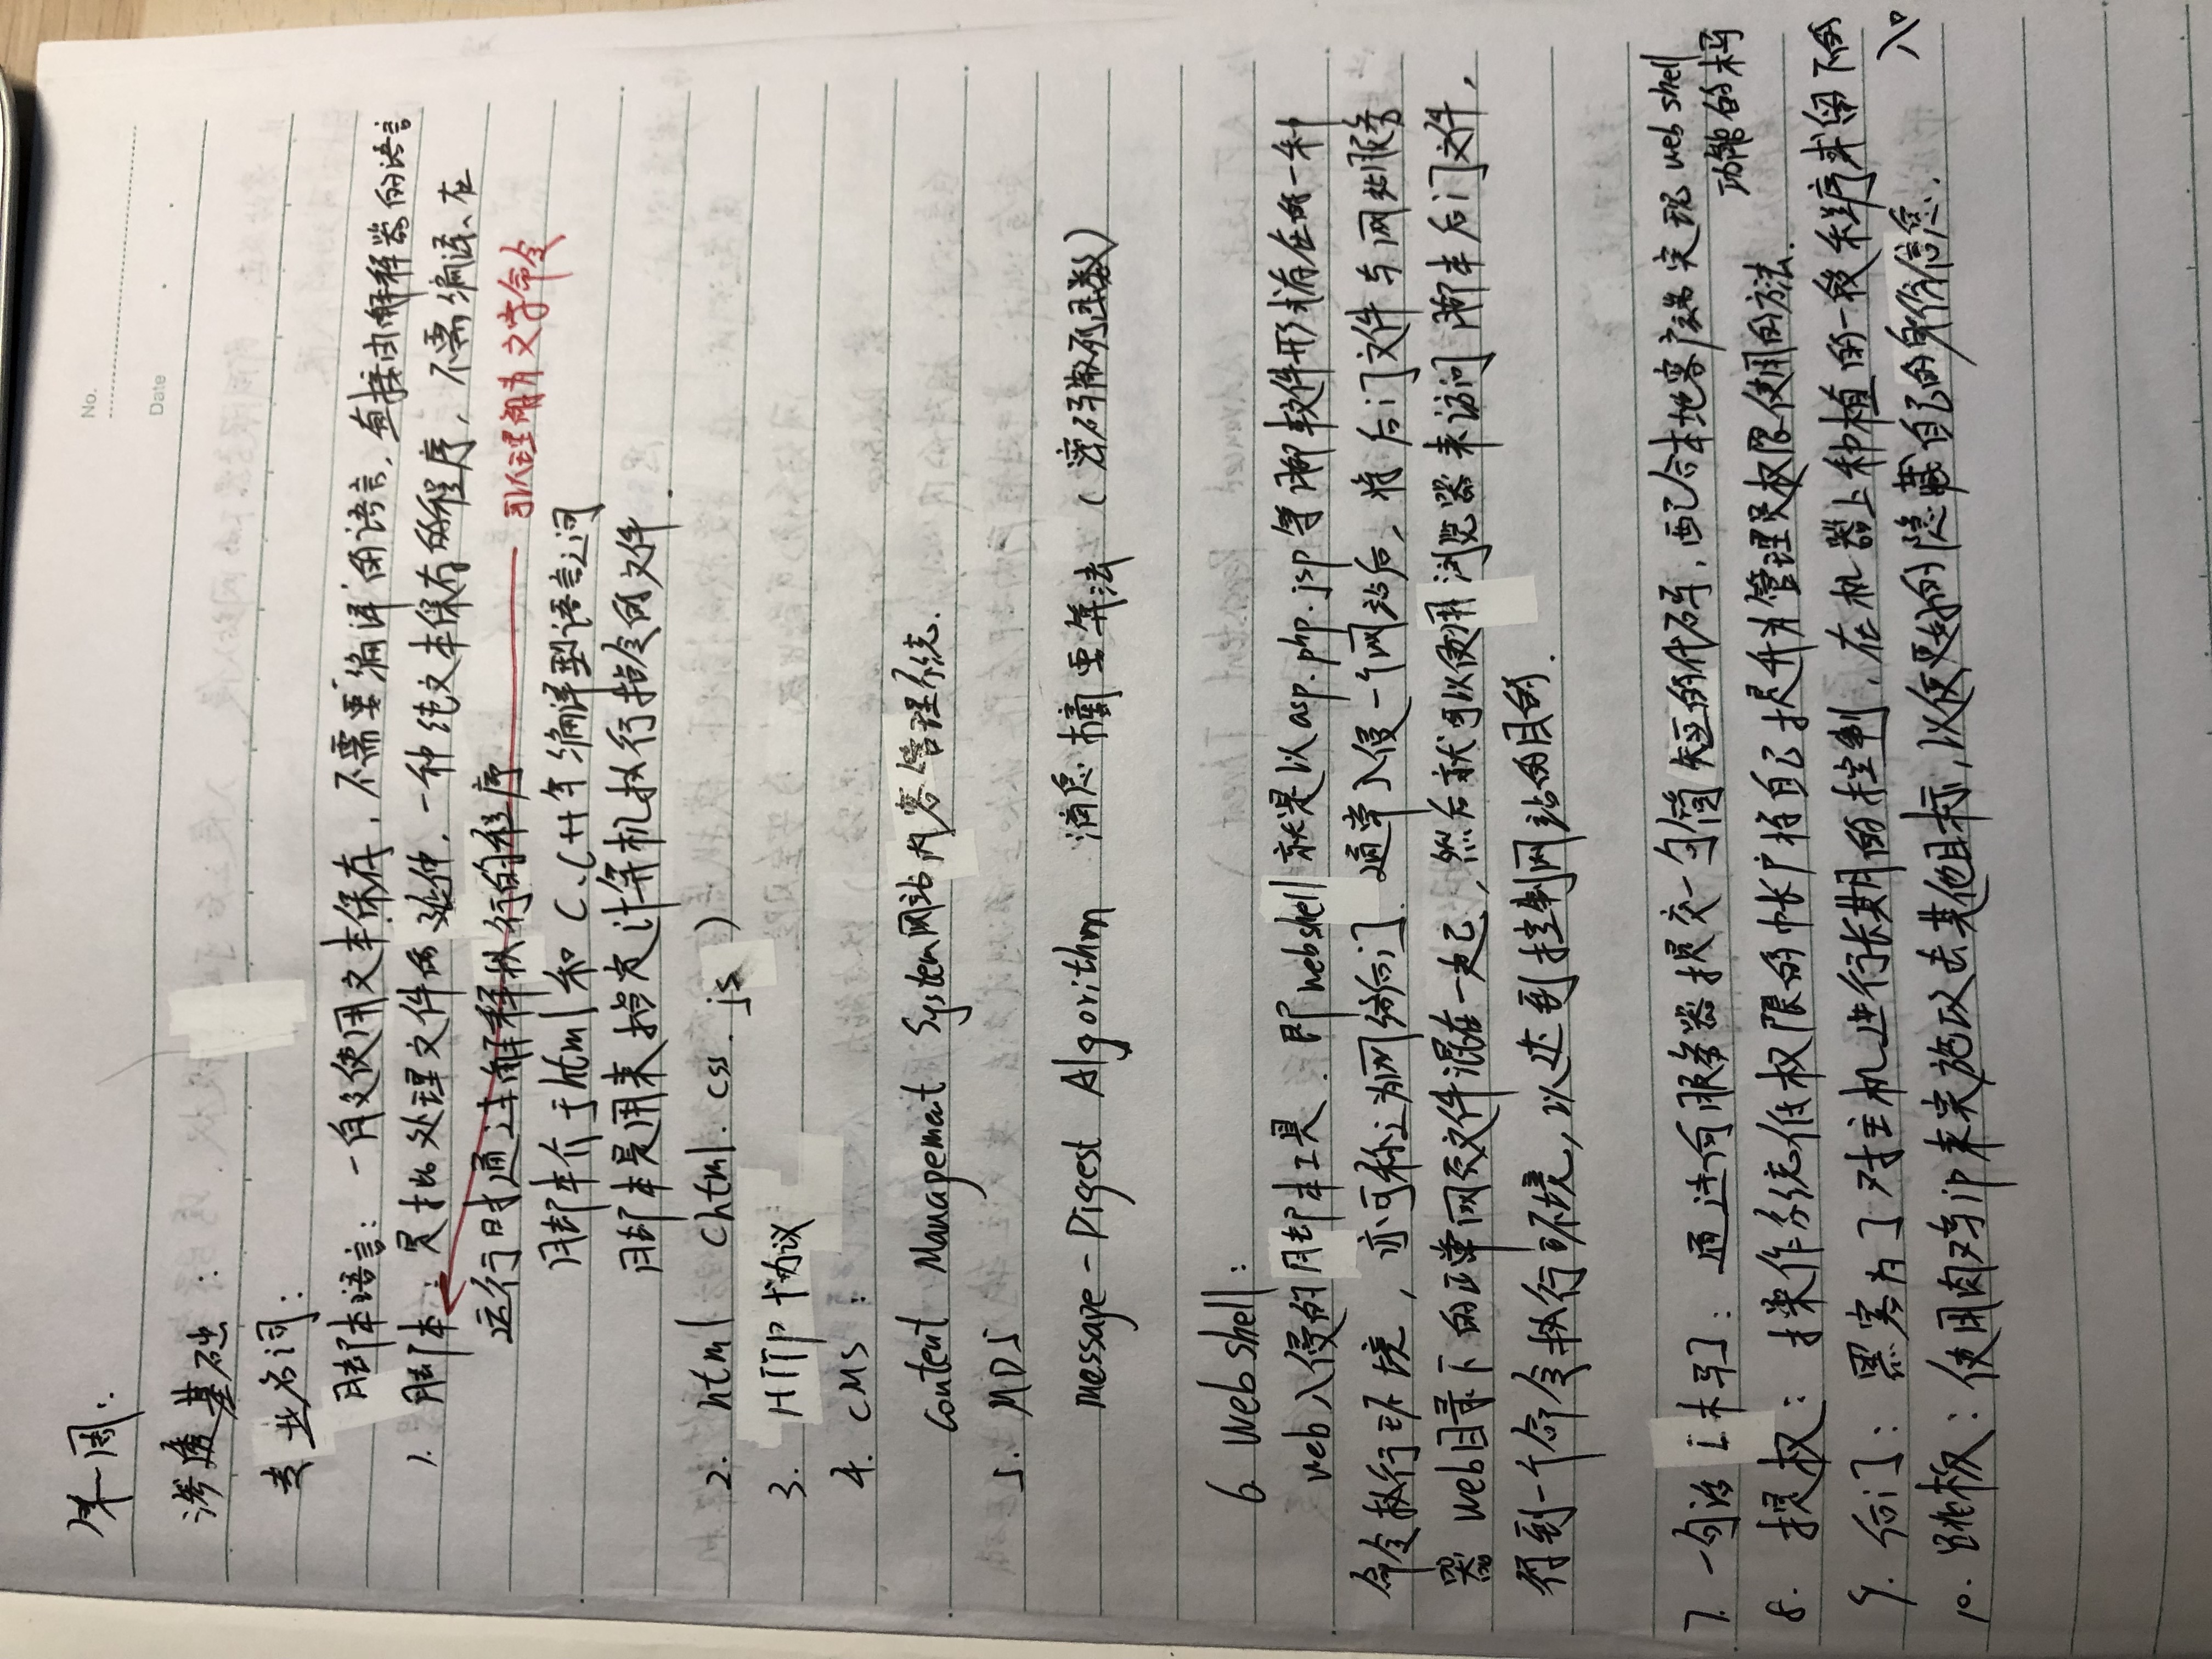 No.
Date
第一周:
渗透基础:
专业名词:
脚本语言: 一般使用文本保存, 不需要编译的语言, 直接由解释器的语言
1. 脚本: 是批处理文件的延伸, 一种纯文本保存的程序, 不需编译、在
运行时通过解释执行的程序 可以理解为文字命令
脚本介于html和C、C++等编译型语言之间
脚本是用来指定计算机执行指令的文件.
2. html (html. css. js )
3. HTTP 协议
4. CMS:
Content Management System 网站内容管理系统.
5. MD5
Message-Digest Algorithm 消息摘要算法 (密码散列函数)
6. Web shell:
web入侵的脚本工具. 即webshell就是以asp.php.jsp等 件形式存在的一种
命令执行环境, 亦可称之为网络后门. 通常入侵一个网站后, 将后门文件与网站服务
器 web目录下的正常网页文件混在一起, 然后就可以使用浏览器来访问脚本后门文件,
得到一个命令执行环境, 以达到控制网站的目的.
7. 一句话 木马]: 通过向服务器提交一句简短的代码, 配合本地客户端实现 web shell
功能的木马
8. 提权: 操作系统低权限的帐户将自己提升为管理员权限使用的方法.
9. 后门: 黑客为了对主机进行长期的控制, 在机器上种植的一段程序或留下的
入口
10. 跳板: 使用肉鸡ip来实施攻击其他目标, 以便更好的隐藏自己的身份信息.